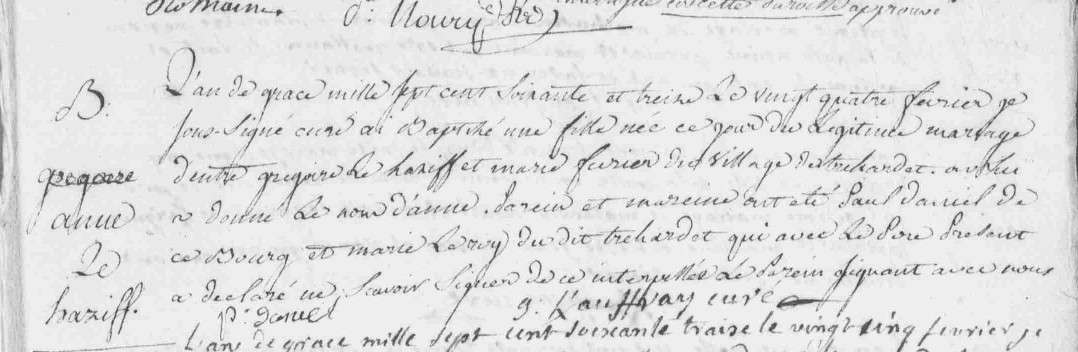 Romaine. d. Noury
approuvé
B. L'an de grace mille sept cent soixante et treize Le vingt quatre fevrier je
sous-signé curé ai Baptisé une fille née ce jour du Legitime mariage
gregoire d'entre gregoire Le haziff et marie fevrier du village de trehardet. on lui
anne a donné Le nom d'anne. Parein et mareine ont eté Paul daniel de
Le ce Bourg et marie Le roy du dit trehardet qui avec Le Pere Present
haziff. a declaré ne scavoir Signer de ce interpellés Le Parein signant avec nous
p. daniel g. L'auffray curé
L'an de grace mille sept cent soixante traize le vingt cinq fevrier je